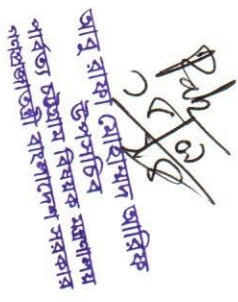 আবু রাফা মোহাম্মদ আরিফ
উপসচিব
পার্বত্য চট্টগ্রাম বিষয়ক মন্ত্রণালয়
গণপ্রজাতন্ত্রী বাংলাদেশ সরকার